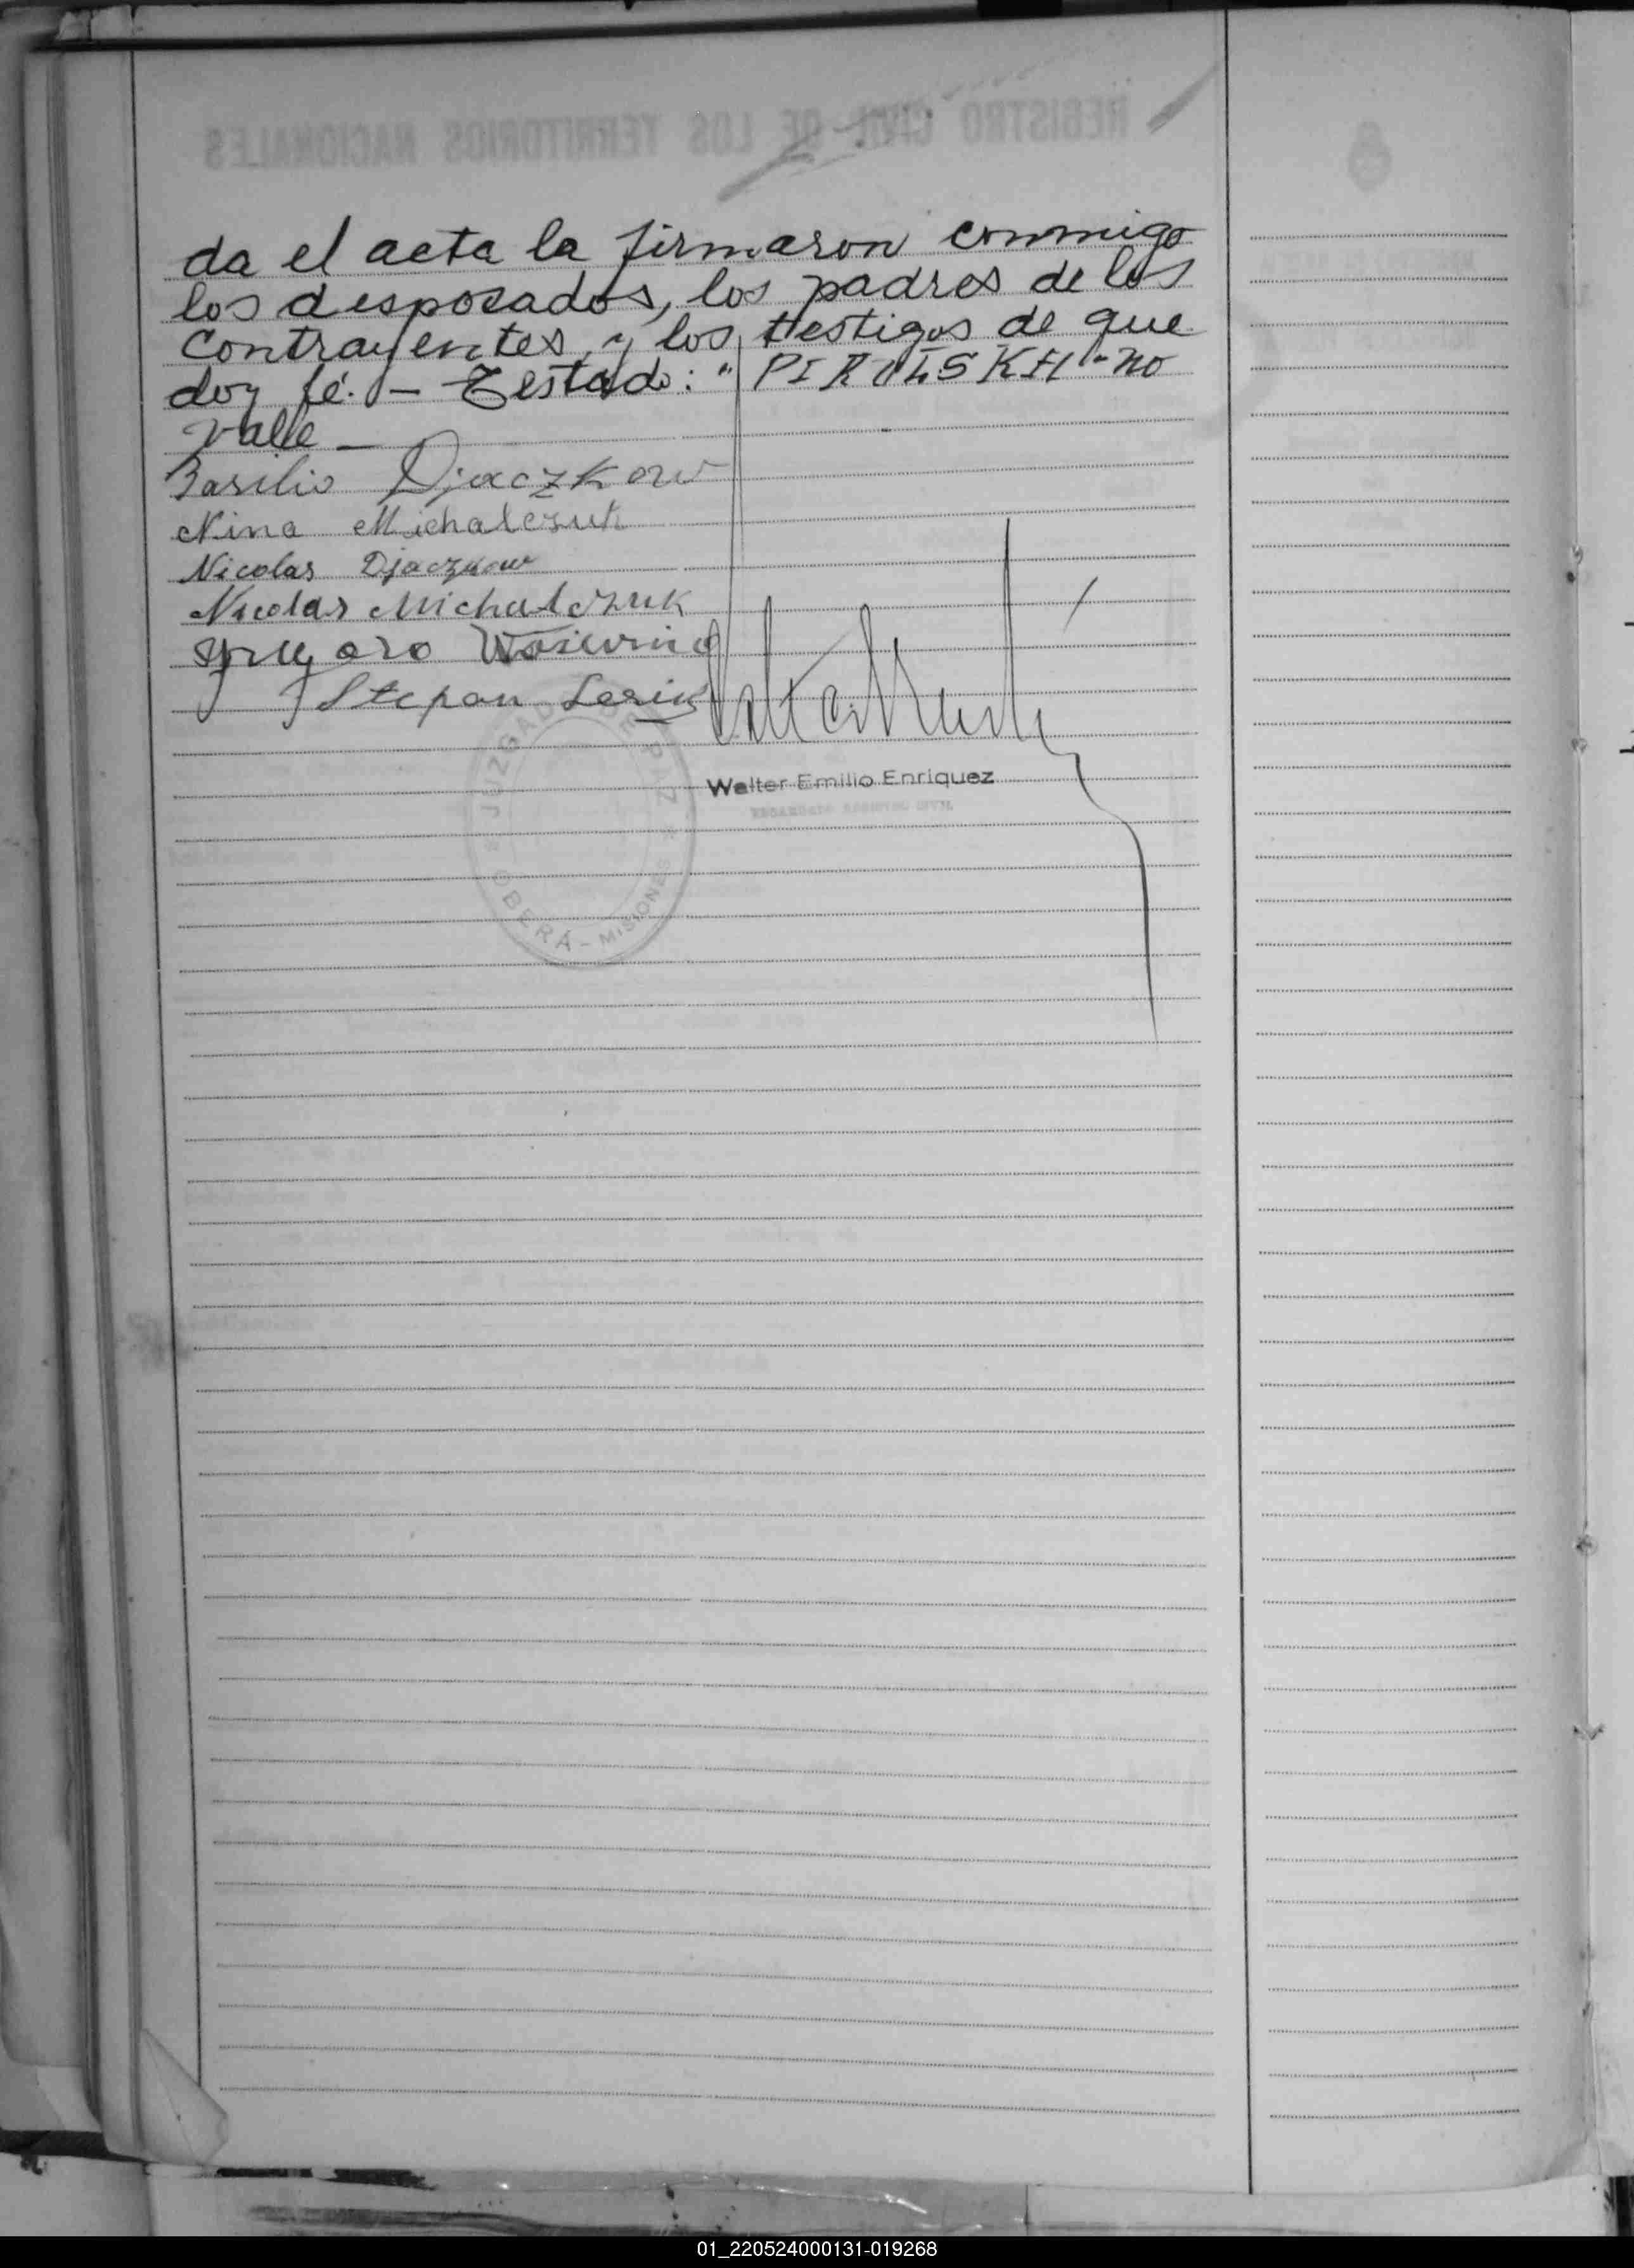 REGISTRO CIVIL DE LOS TERRITORIOS NACIONALES
da el acta la firmaron conmigo
los desposados, los padres de los
contrayentes, y los testigos de que
doy fé. - Testado: "PIROLSKH"-no
valle -
Basilio Djaczkow
Nina Michalczuk
Nicolas Djaczkow
Nicolas Michalczuk
Stepan
JUZGADO DE PAZ
OBERÁ - MISIONES
Walter Emilio Enriquez
ENCARGADO REGISTRO CIVIL
01_220524000131-019268